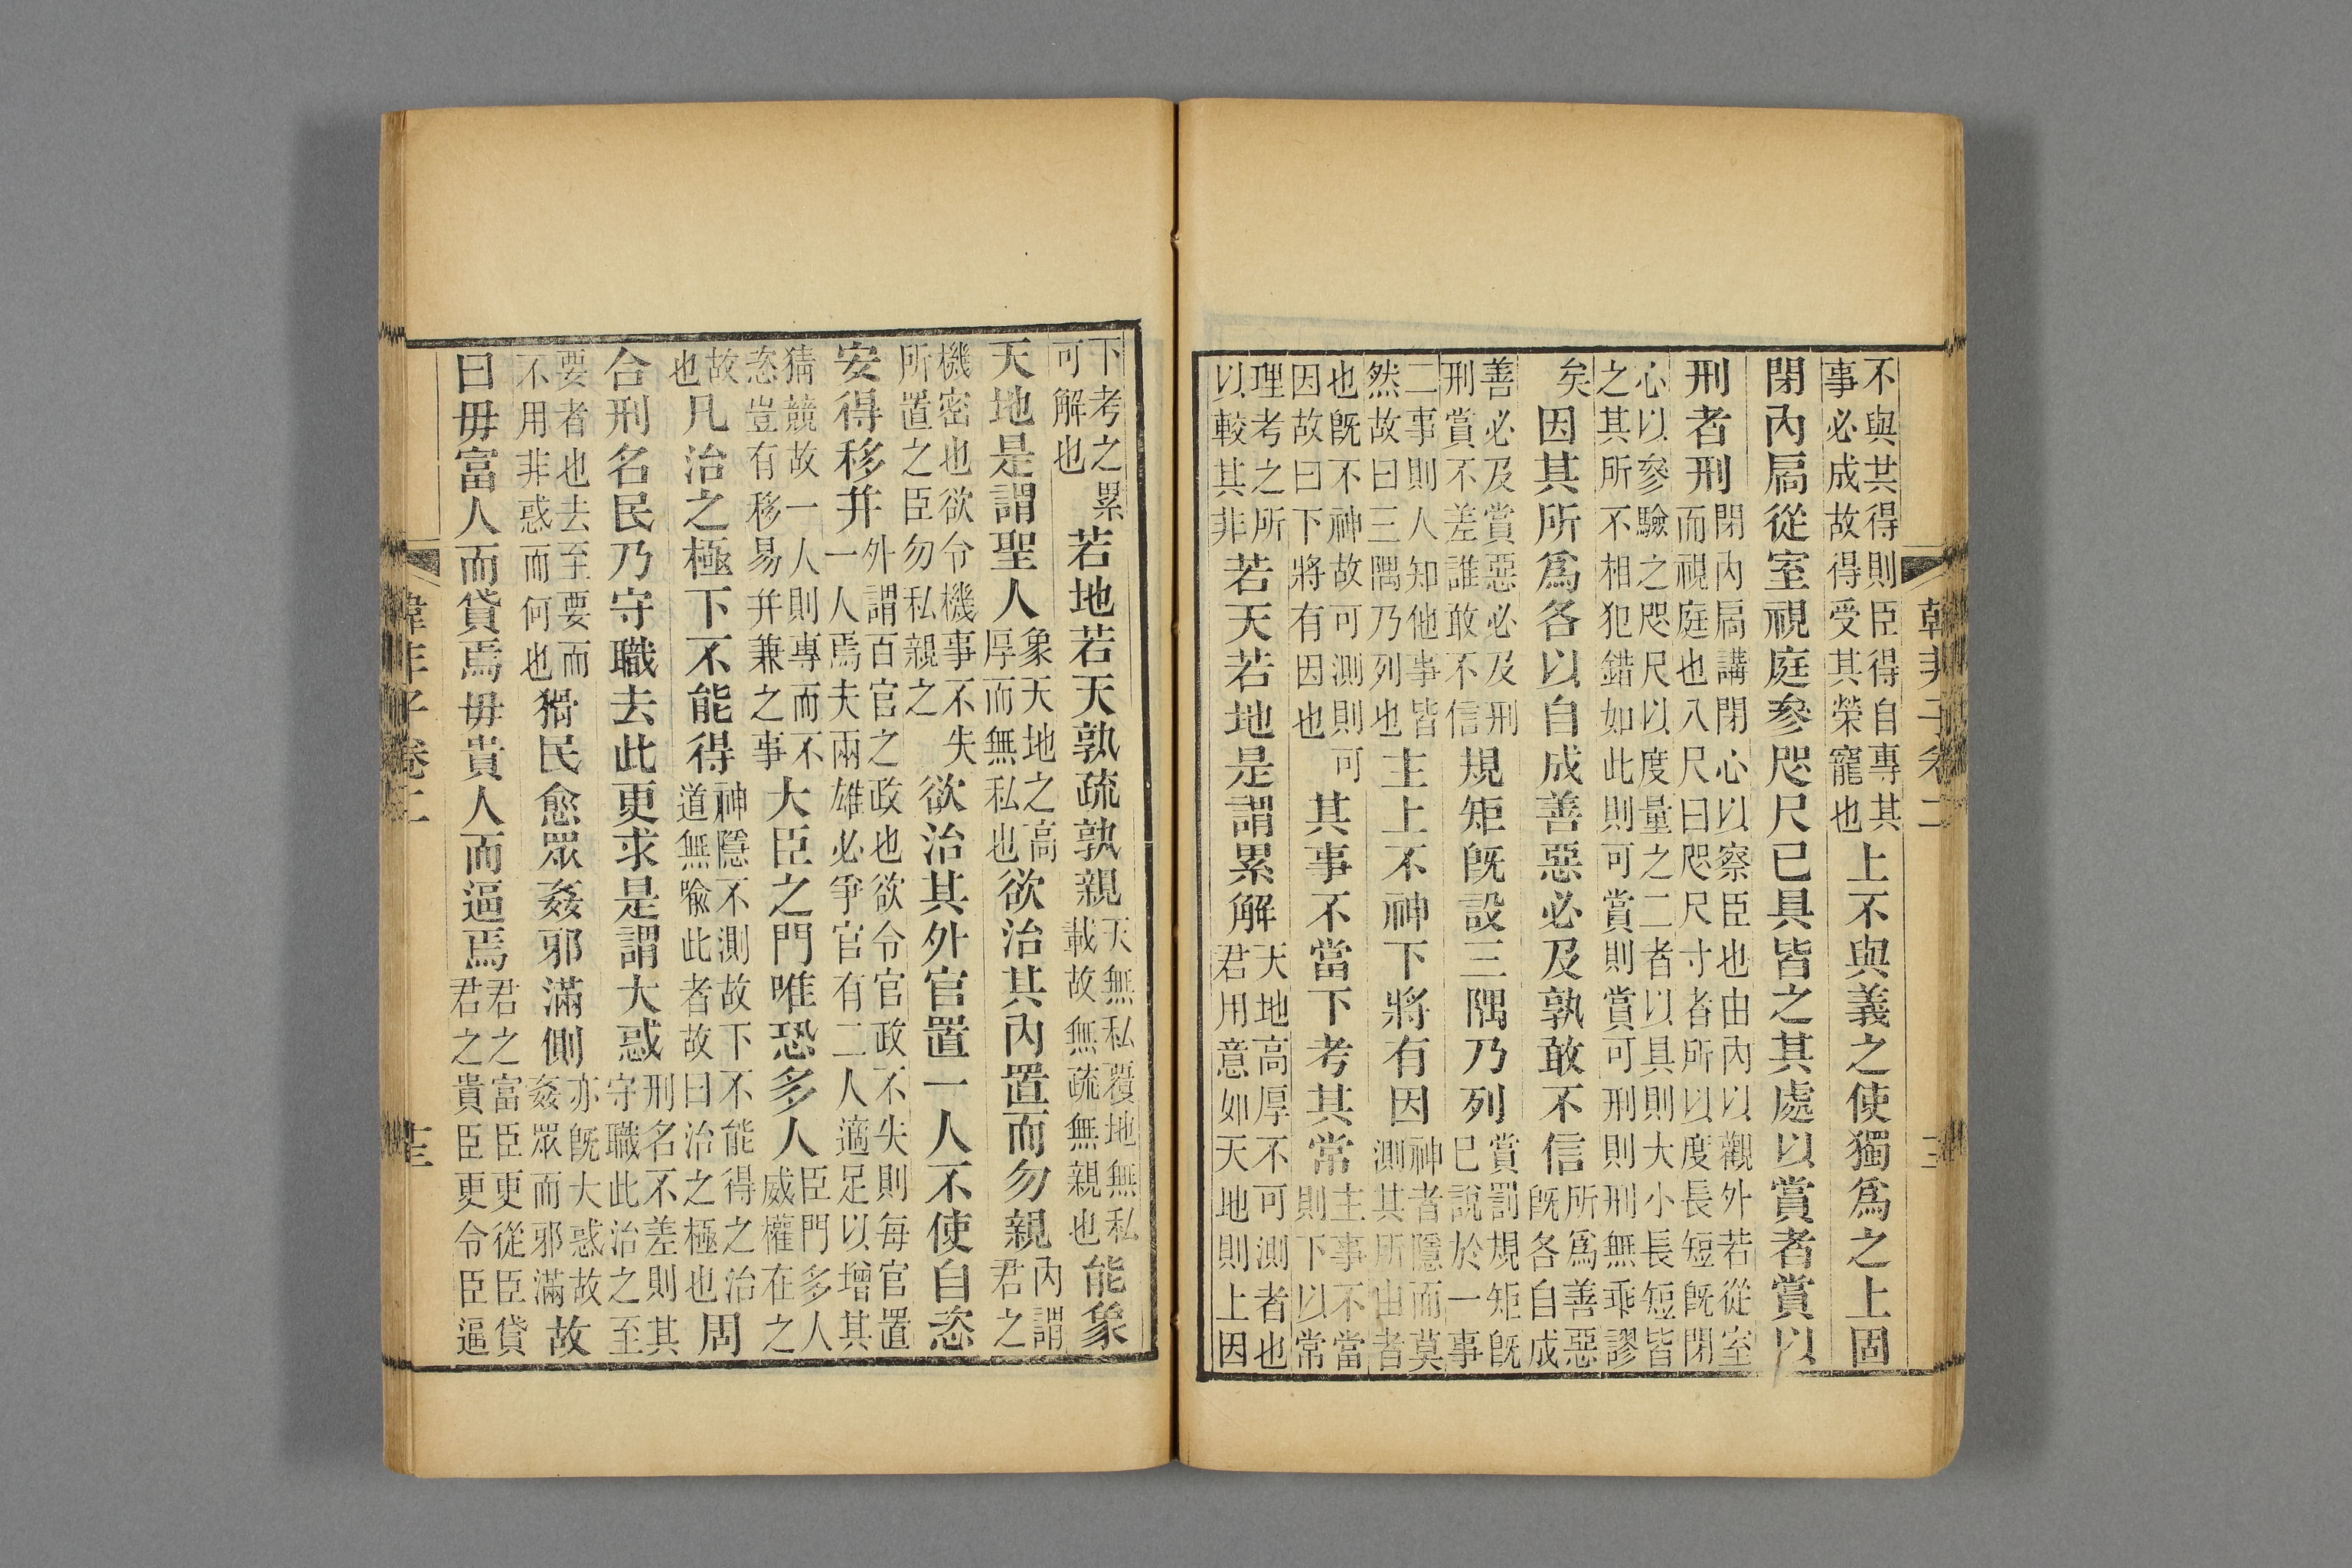 韓非子卷二
不與共得則臣得自專其
事必成故得受其榮寵也
上不與義之使獨爲之上固
閉內扃從室視庭參咫尺已具皆之其處以賞者賞以
刑者刑
閉內扃講閉心以察臣也由內以觀外若從室
而視庭也八尺曰咫尺寸者所以度長短旣閉
心以參驗之咫尺以度量之二者以具則大小長短皆
之其所不相犯錯如此則可賞則賞可刑則刑無乖謬
矣
因其所爲各以自成善惡必及孰敢不信
所爲善惡
旣各自成
善必及賞惡必及刑
刑賞不差誰敢不信
規矩旣設三隅乃列
賞罰規矩旣
巳說於一事
二事則人知他事皆
然故曰三隅乃列也
主上不神下將有因
神者隱而莫
測其所由者
也旣不神故可測則可
因故曰下將有因也
其事不當下考其常
主事不當
則下以常
理考之所
以較其非
若天若地是謂累解
天地高厚不可測者也
君用意如天地則上因
下考之累
可解也
若地若天孰疏孰親
天無私覆地無私
載故無疏無親也
能象
天地是謂聖人
象天地之高
厚而無私也
欲治其內置而勿親
內謂
君之
機密也欲令機事不失
所置之臣勿私親之
欲治其外官置一人不使自恣
安得移并
外謂百官之政也欲令官政不失則每官置
一人焉夫兩雄必爭官有二人適足以增其
猜競故一人則專而不
恣豈有移易并兼之事
大臣之門唯恐多人
臣門多人
威權在之
故
也
凡治之極下不能得
神隱不測故下不能得之治
道無喩此者故曰治之極也
周
合刑名民乃守職去此更求是謂大惑
刑名不差則其
守職此治之至
要者也去至要而
不用非惑而何也
猾民愈眾姦邪滿側
亦旣大惑故
姦眾而邪滿
故
曰毋富人而貸焉毋貴人而逼焉
君之富臣更從臣貸
君之貴臣更令臣逼
韓非子卷二